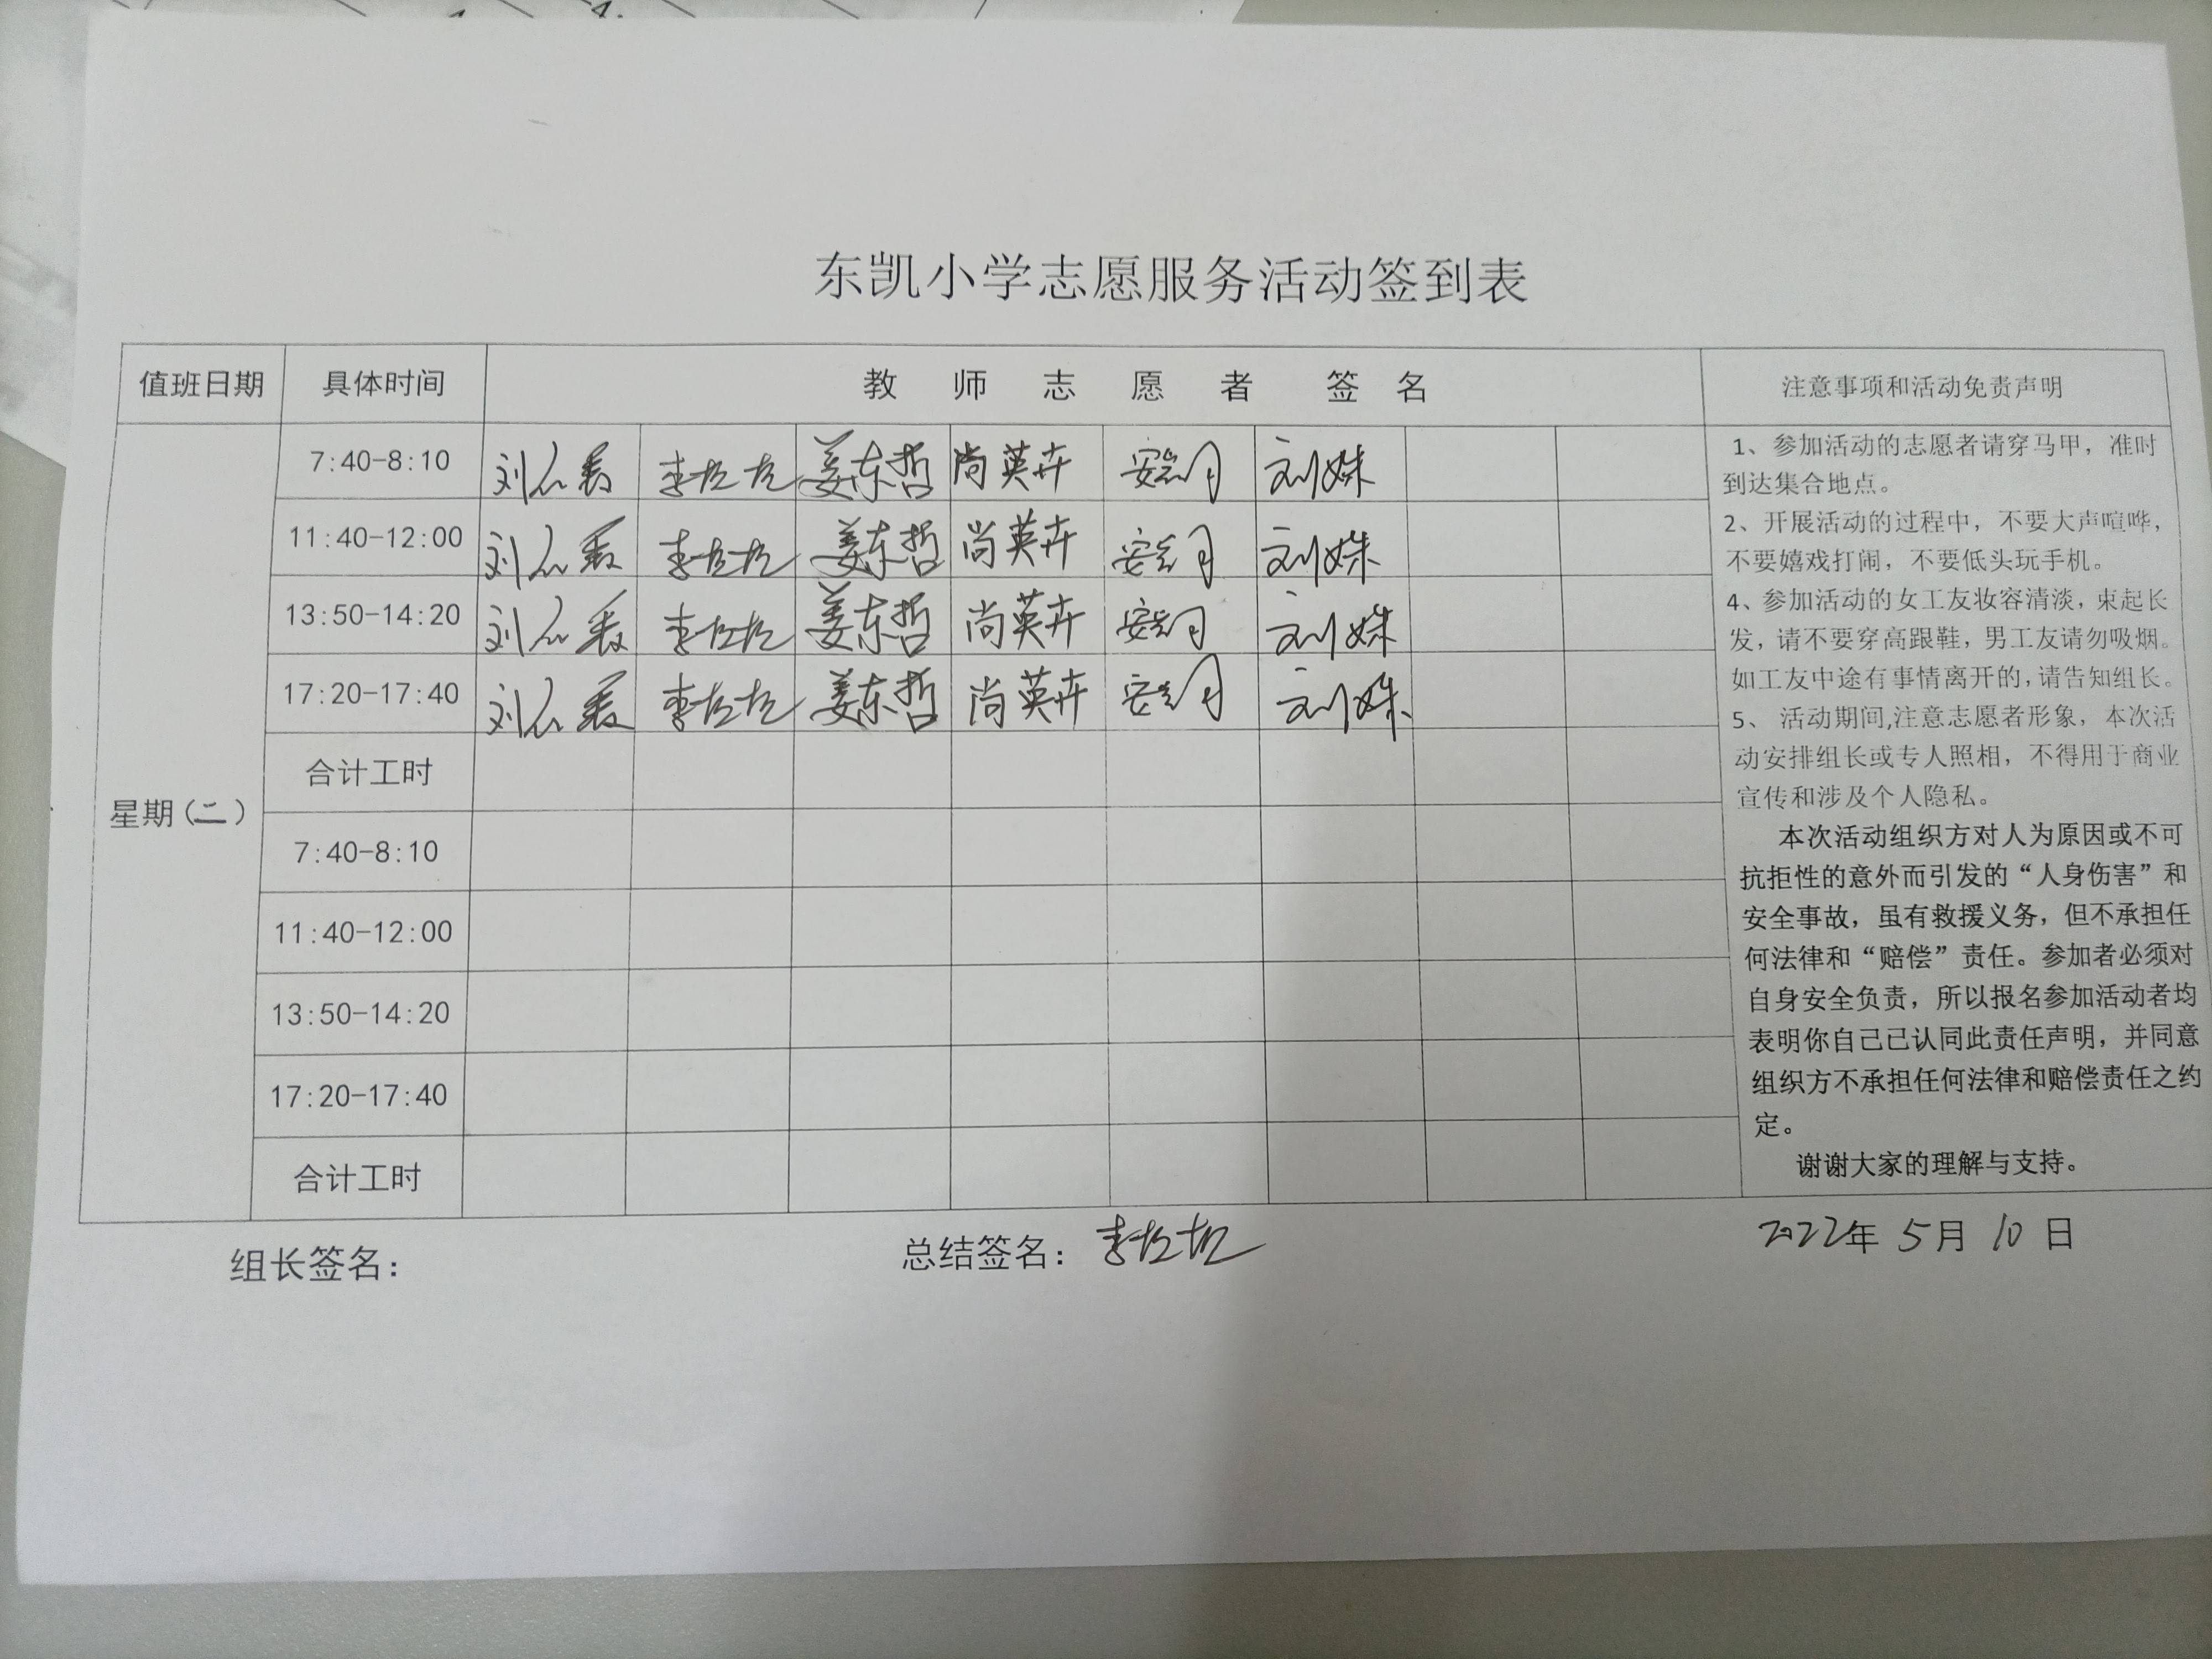 东凯小学志愿服务活动签到表
值班日期 具体时间 教师志愿者 签名 注意事项和活动免责声明
星期(二)
7:40-8:10 姜东哲 尚英卉 刘姝
11:40-12:00 姜东哲 尚英卉 刘姝
13:50-14:20 姜东哲 尚英卉 刘姝
17:20-17:40 姜东哲 尚英卉 刘姝
合计工时
7:40-8:10
11:40-12:00
13:50-14:20
17:20-17:40
合计工时
1、参加活动的志愿者请穿马甲，准时
到达集合地点。
2、开展活动的过程中，不要大声喧哗，
不要嬉戏打闹，不要低头玩手机。
4、参加活动的女工友妆容清淡，束起长
发，请不要穿高跟鞋，男工友请勿吸烟。
如工友中途有事情离开的，请告知组长。
5、 活动期间,注意志愿者形象，本次活
动安排组长或专人照相，不得用于商业
宣传和涉及个人隐私。
本次活动组织方对人为原因或不可
抗拒性的意外而引发的“人身伤害”和
安全事故，虽有救援义务，但不承担任
何法律和“赔偿”责任。参加者必须对
自身安全负责，所以报名参加活动者均
表明你自己已认同此责任声明，并同意
组织方不承担任何法律和赔偿责任之约
定。
谢谢大家的理解与支持。
组长签名： 总结签名： 2022年 5月 10日